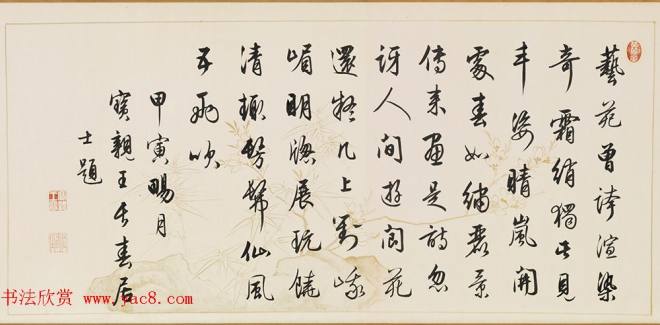 藝苑曾誇渲染
奇霜綃獨此見
丰姿晴嵐開
處春如繡麗景
傳來畫是詩忽
訝人間遊閬苑
還疑几上對峨
嵋明牕展玩饒
清趣髣髴仙風
吹
甲寅暢月
寶親王長春居
士題
书法欣赏 www.yac8.com